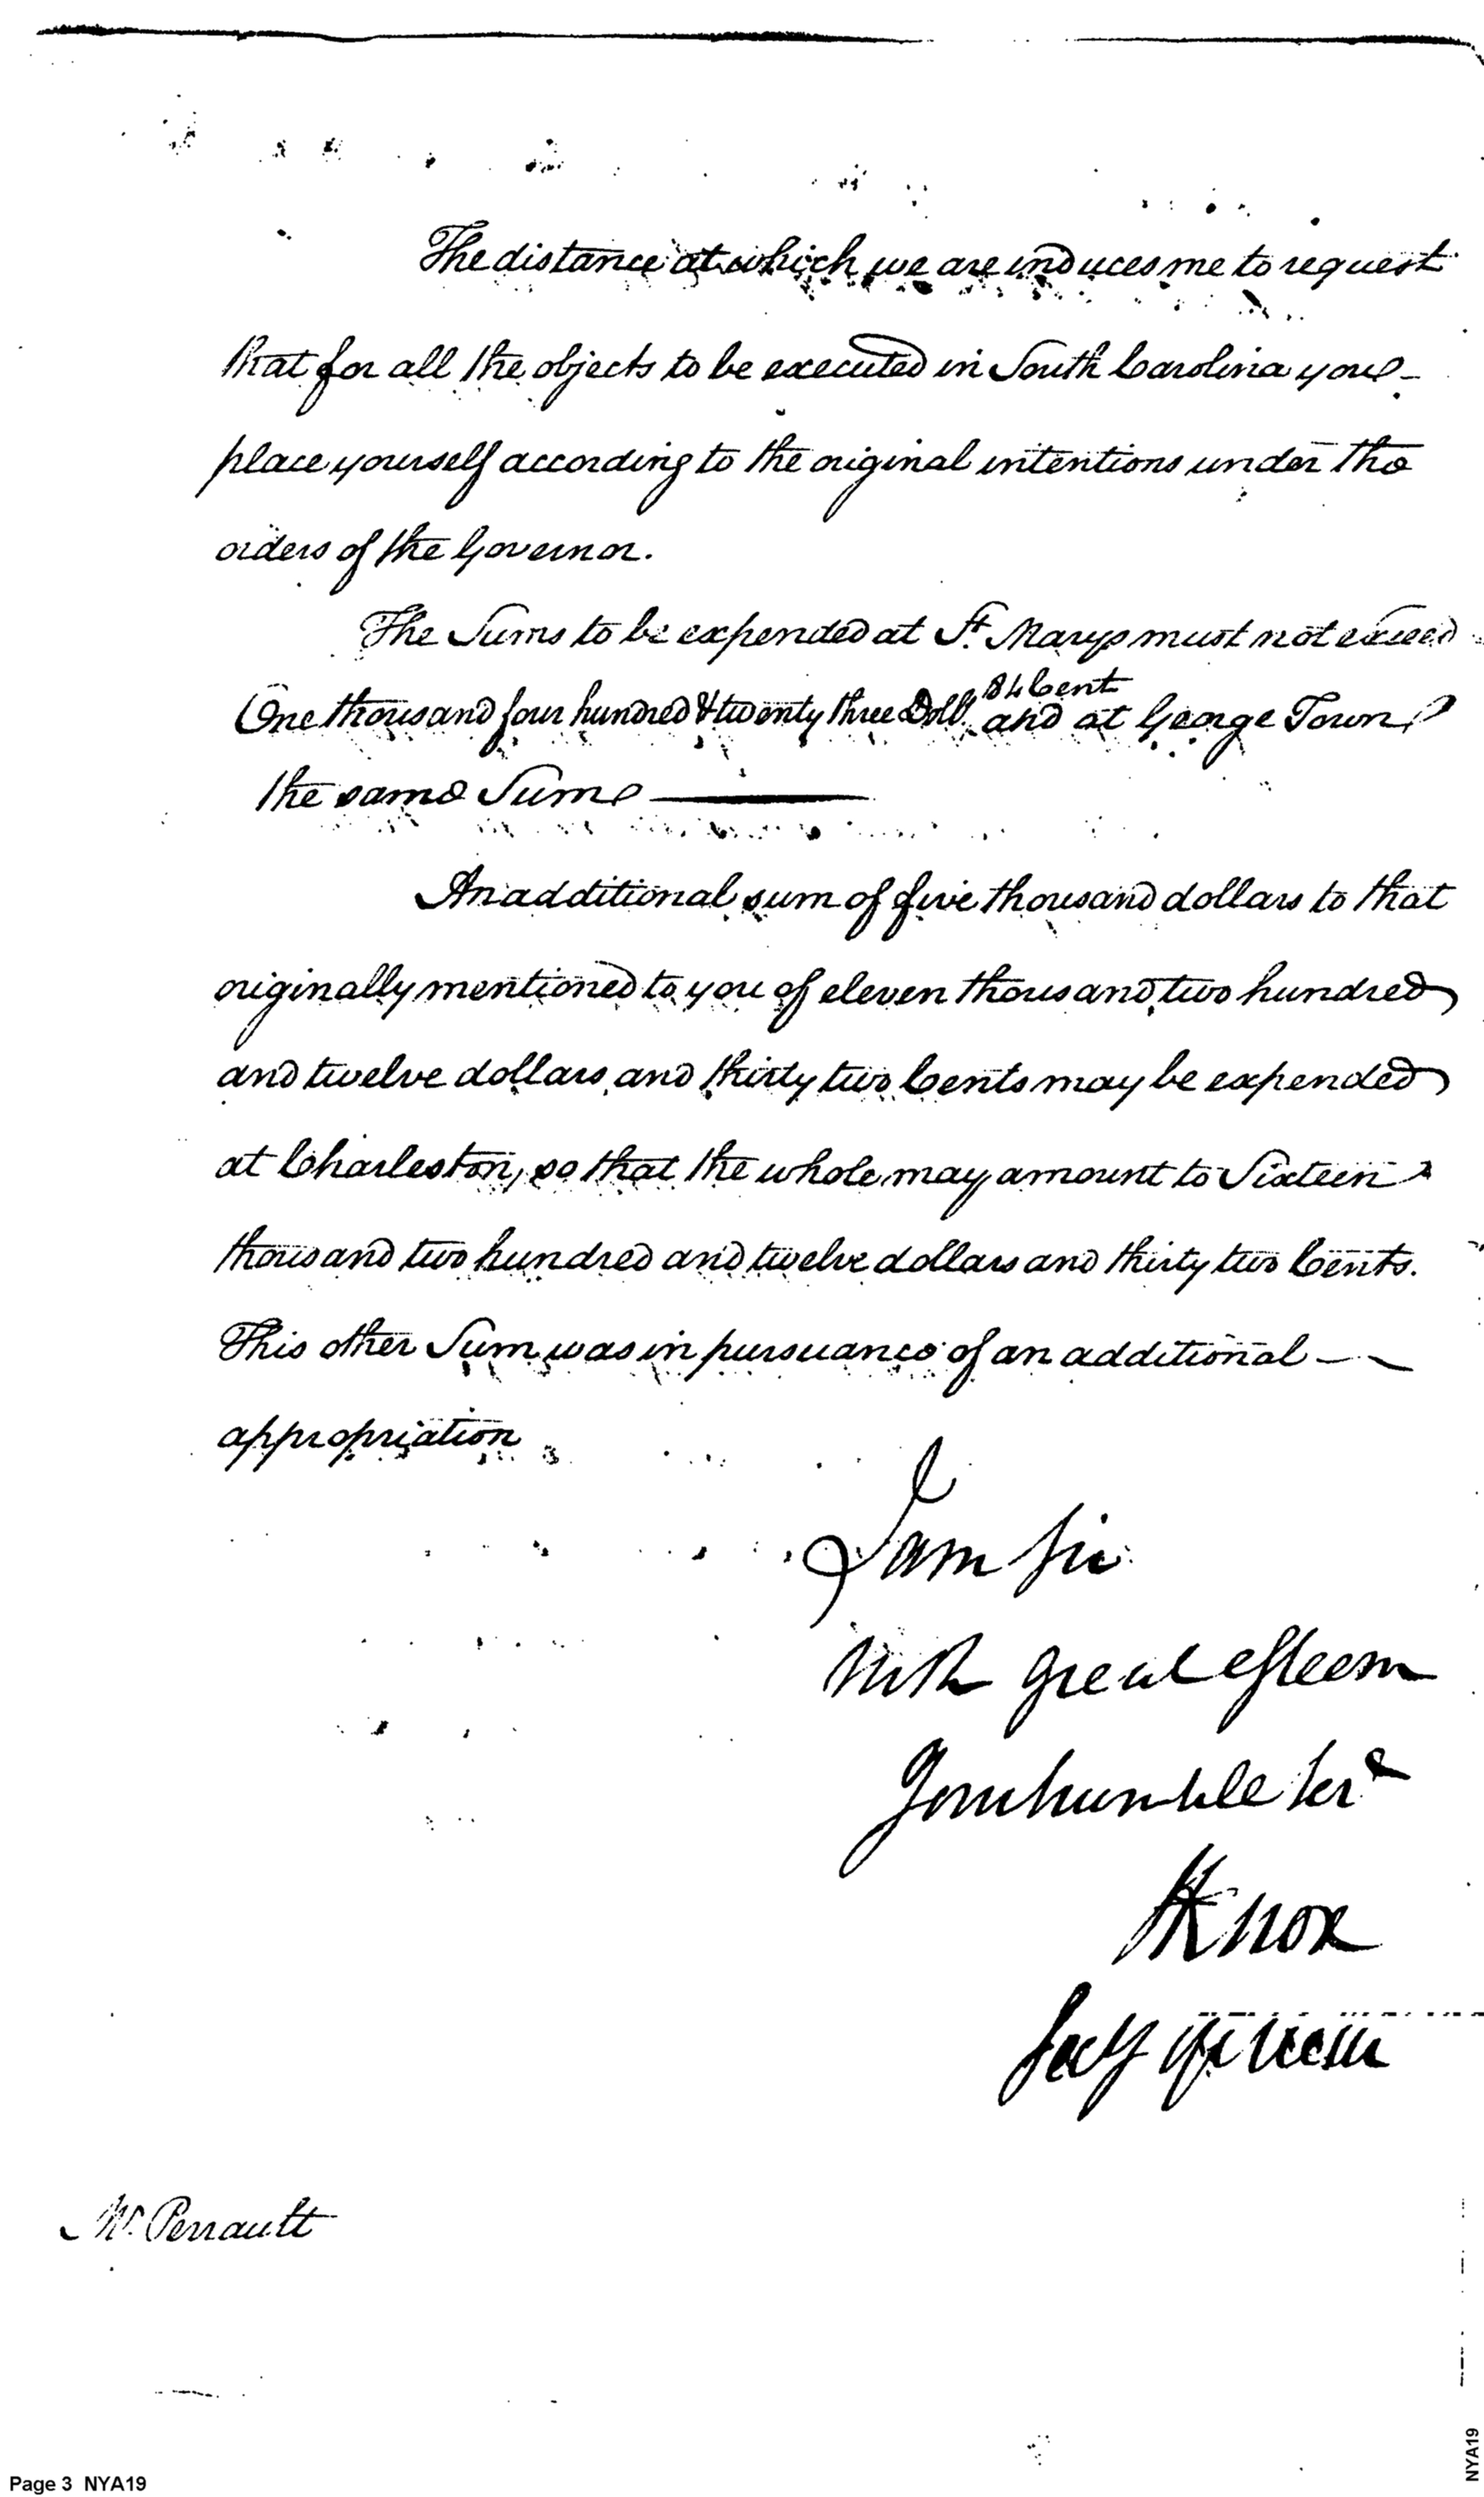 The distance at which we are induces me to request
that for all the objects to be executed in South Carolina you
place yourself according to the original intentions under the
orders of the Governor.
The Sums to be expended at St. Marys must not exceed
84 Cent
One thousand four hundred & twenty three Doll. and at George Town
the same Sum
An additional sum of five thousand dollars to that
originally mentioned to you of eleven thousand two hundred
and twelve dollars and thirty two Cents may be expended
at Charleston, so that the whole may amount to Sixteen
thousand two hundred and twelve dollars and thirty two Cents.
This other Sum was in pursuance of an additional
appropriation
I am sir
with great esteem
Your humble Sert
HKnox
Secy of War
Mr. Perrault
Page 3 NYA19
NYA19